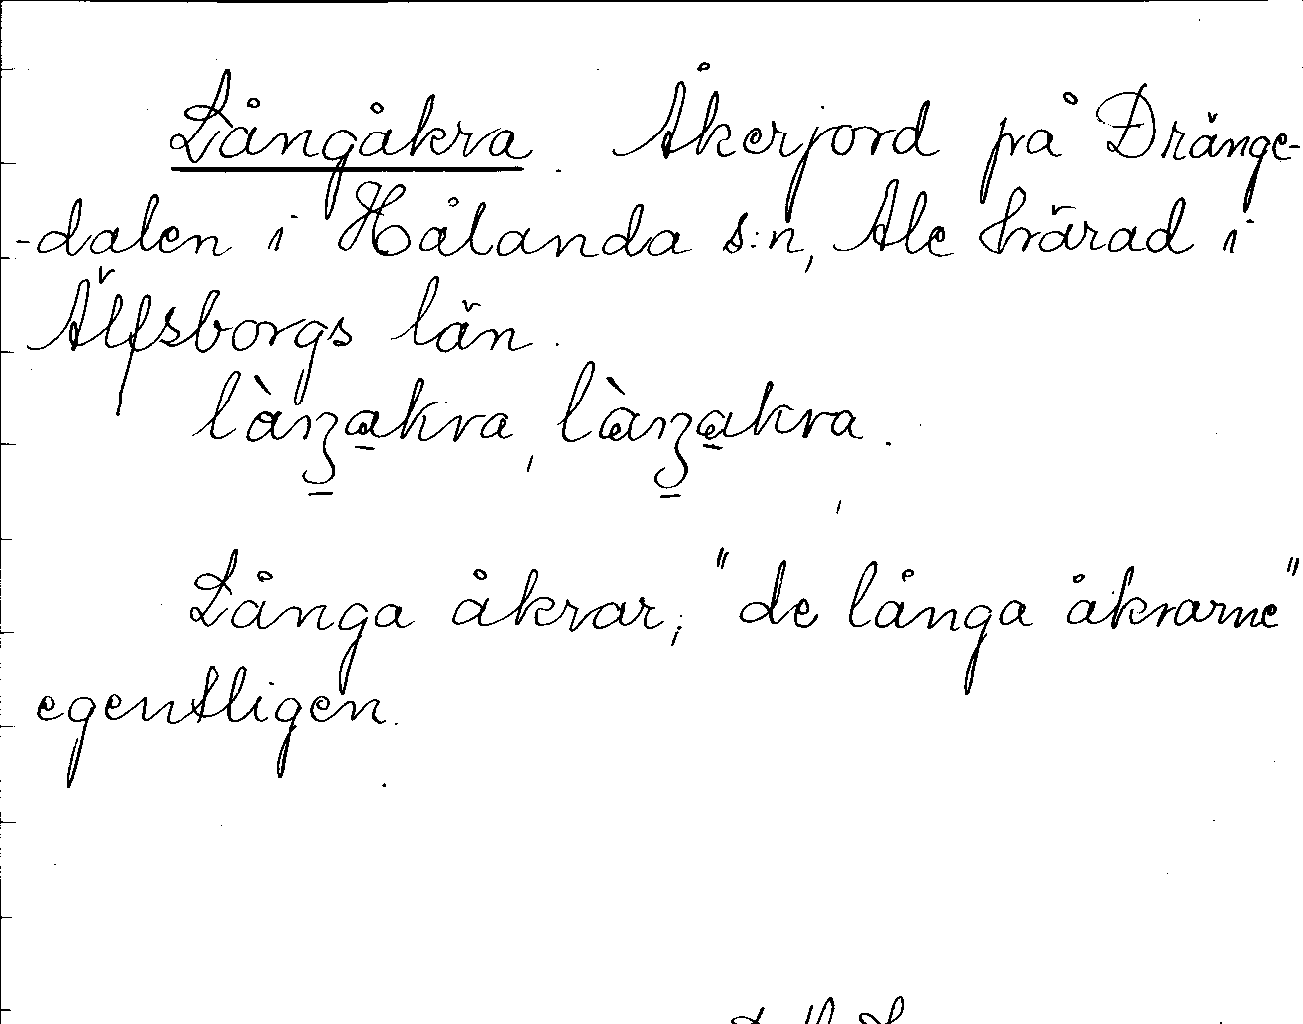 Långåkra. Åkerjord på Dränge-
-dalen i Hålanda s:n, Ale härad i
Älfsborgs län.
Långa åkrar; "de långa åkrarne"
egentligen.